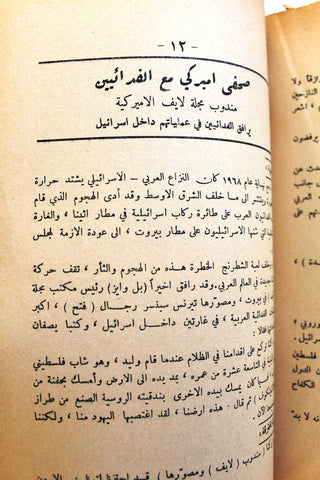 — ١٢ —
صحفي اميركي مع الفدائيين
مندوب مجلة لايف الاميركية
يرافق الفدائيين في عملياتهم داخل اسرائيل
نهاية عام ١٩٦٨ كان النزاع العربي – الاسرائيلي يشتد حرارة
وينتشر الى ما خلف الشرق الاوسط وقد أدى الهجوم الذي قام
الفدائيون العرب على طائرة ركاب اسرائيلية في مطار اثينا ، والغارة
التي شنها الاسرائيليون على مطار بيروت ، الى عودة الازمة لمجلس
وخلف لعبة الشطرنج الخطرة هذه من الهجوم والثأر ، تقف حركة
جديدة في العالم العربي. وقد رافق اخيراً ( بل وايز ) رئيس مكتب مجلة
في بيروت ، ومصورها تيرنس سبنسر رجال ( فتح ) ، اكبر
الفدائية العربية ، في غارتين داخل اسرائيل ، وكتبا يصفان
نركع على اقدامنا في الظلام عندما قام وليد ، وهو شاب فلسطيني
في التاسعة عشرة من عمره ، بمد يده الى الارض وأمسك بحفنة من
كان يمسك بيده الاخرى بندقيته الروسية الصنع من طراز
ثم قال : هذه ارضنا ، لقد اغتصبها اليهود منا ، ولكننا
الآن .
مندوب ( لايف ) ومصورها )